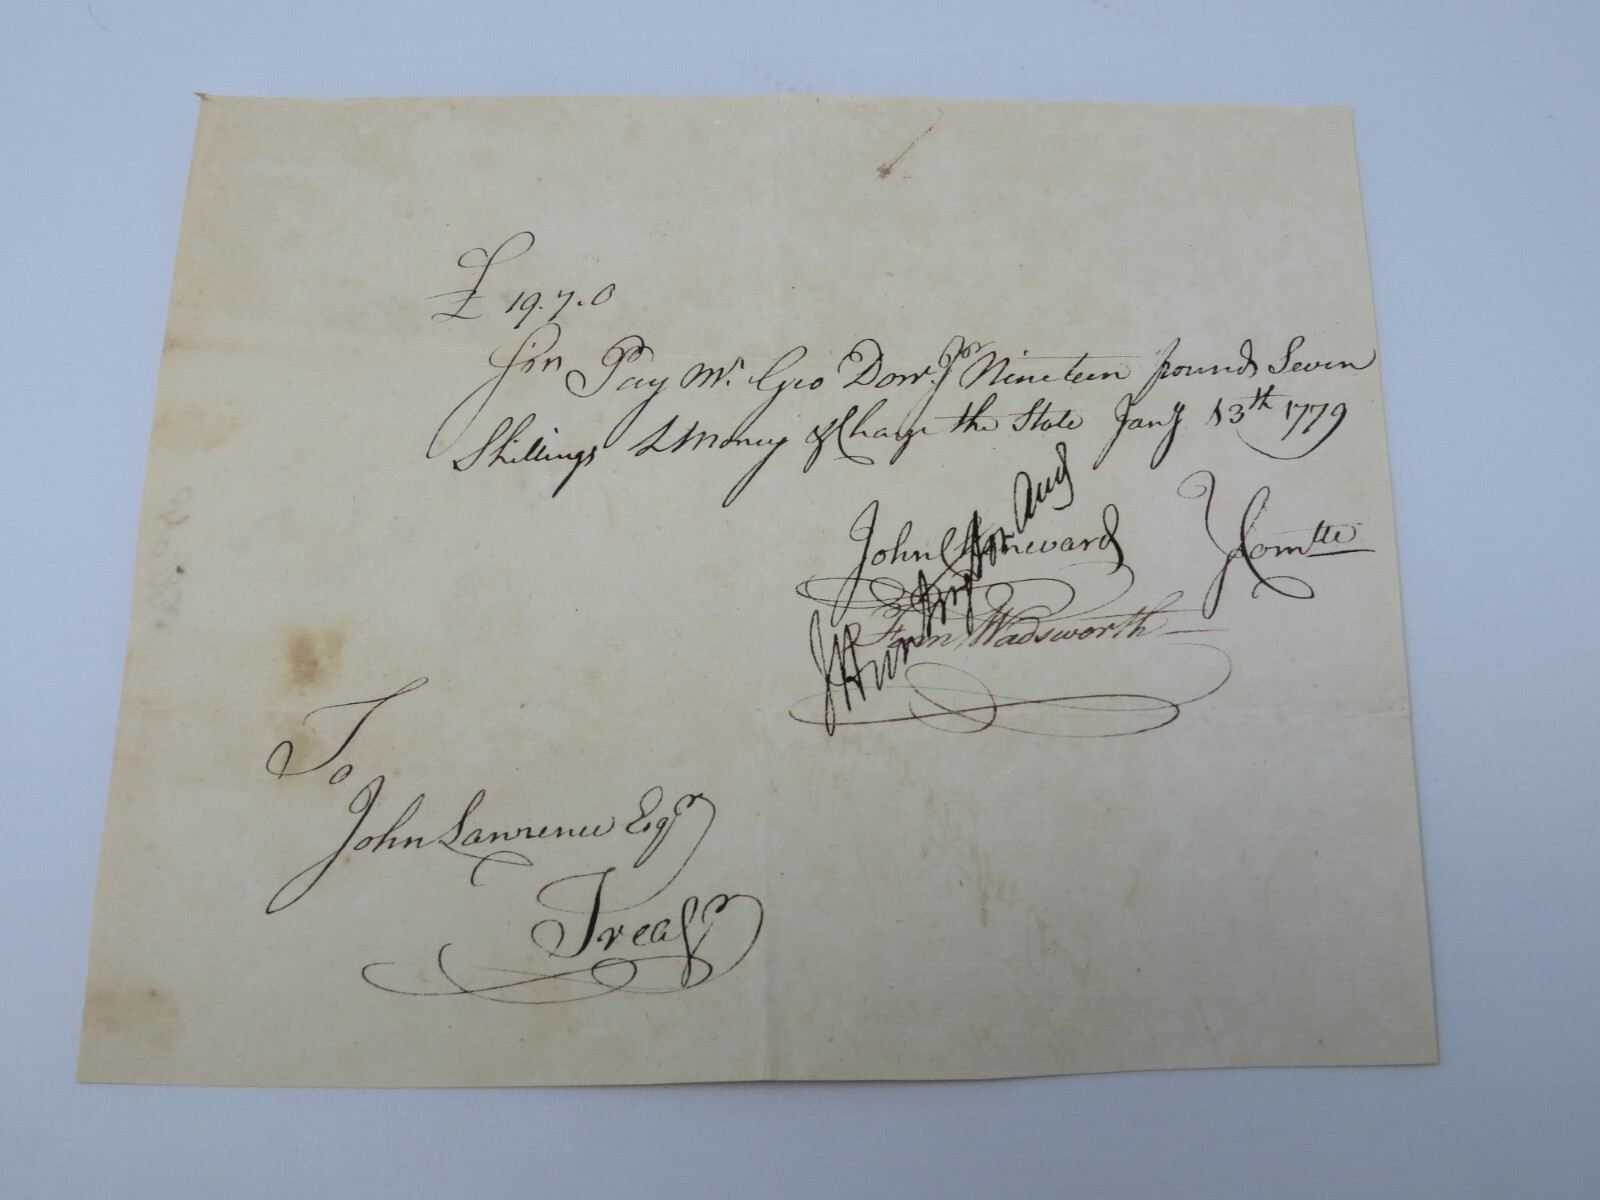 £ 19.7.0
Sir Pay Mr. Geo Dow Jr Nineteen pounds Seven
Shillings L Money & Charge the State Jany 13th 1779
John Chenevard
Fenn Wadsworth
Comtte
J Huntington Aud
To
John Lawrence Esqr
Treasr